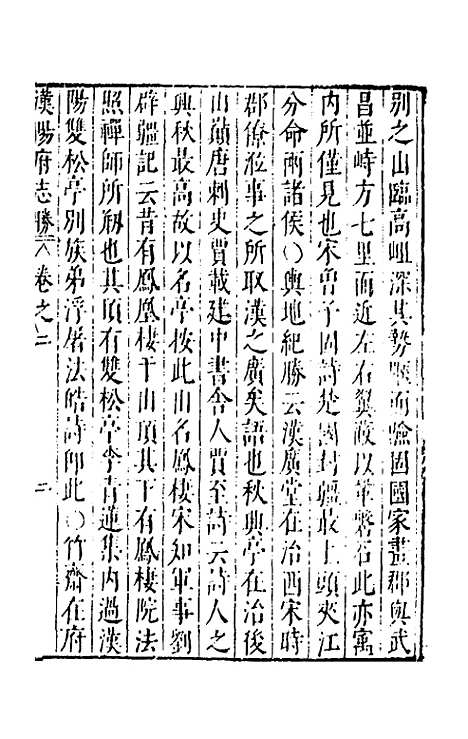 別之山臨高岨深其勢險而固國家畫郡與武
昌並峙方七里而近左右翼蔽以軍磐石此亦寓
內所僅見也宋曾子固詩楚國封疆最上頭夾江
分命兩諸侯〇輿地紀勝云漢廣堂在治西宋時
郡僚涖事之所取漢之廣矣語也秋興亭在治後
山巔唐刺史賈載建中書舍人賈至詩云詩人之
興秋最高故以名亭按此山名鳳棲宋知軍事劉
辟疆記云昔有鳳凰棲于山頂其下有鳳棲院法
照禪師所剏也其頂有雙松亭李青蓮集內過漢
陽雙松亭別族弟浮屠法皓詩卽此〇竹齋在府
漢陽府志勝 卷之二 二